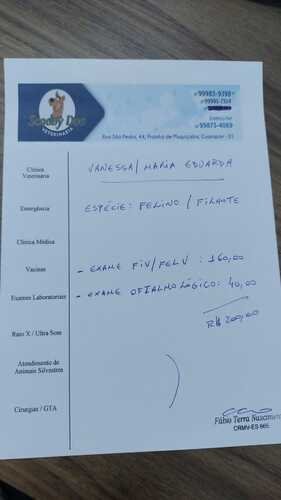 Scooby Doo
VETERINÁRIA
99985-9398
Rua São Pedro, 44, Prainha de Muquiçaba, Guarapari - ES
Clínica Veterinária
VANESSA / MARIA EDUARDA
Emergência
ESPÉCIE: FELINO / FILHOTE
Clínica Médica
Vacinas
- EXAME FIV/FELV : 160,00
Exames Laboratoriais
- EXAME OFTALMOLÓGICO: 40,00
R$ 200,00
Raio X / Ultra-Som
Atendimento de
Animais Silvestres
Cirurgias / GTA
Fábio Terra
CRMV-ES 665